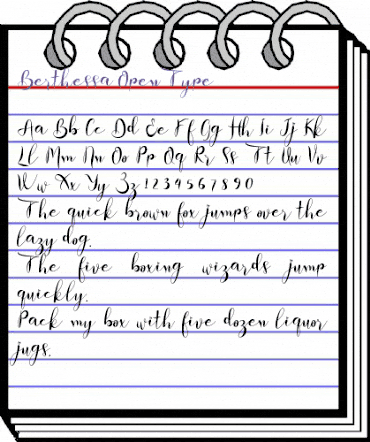 Berthessa Open Type
Aa Bb Cc Dd Ee Ff Gg Hh Ii Jj Kk
Ll Mm Nn Oo Pp Qq Rr Ss Tt Uu Vv
Ww Xx Yy Zz 1 2 3 4 5 6 7 8 9 0
The quick brown fox jumps over the
lazy dog.
The five boxing wizards jump
quickly.
Pack my box with five dozen liquor
jugs.